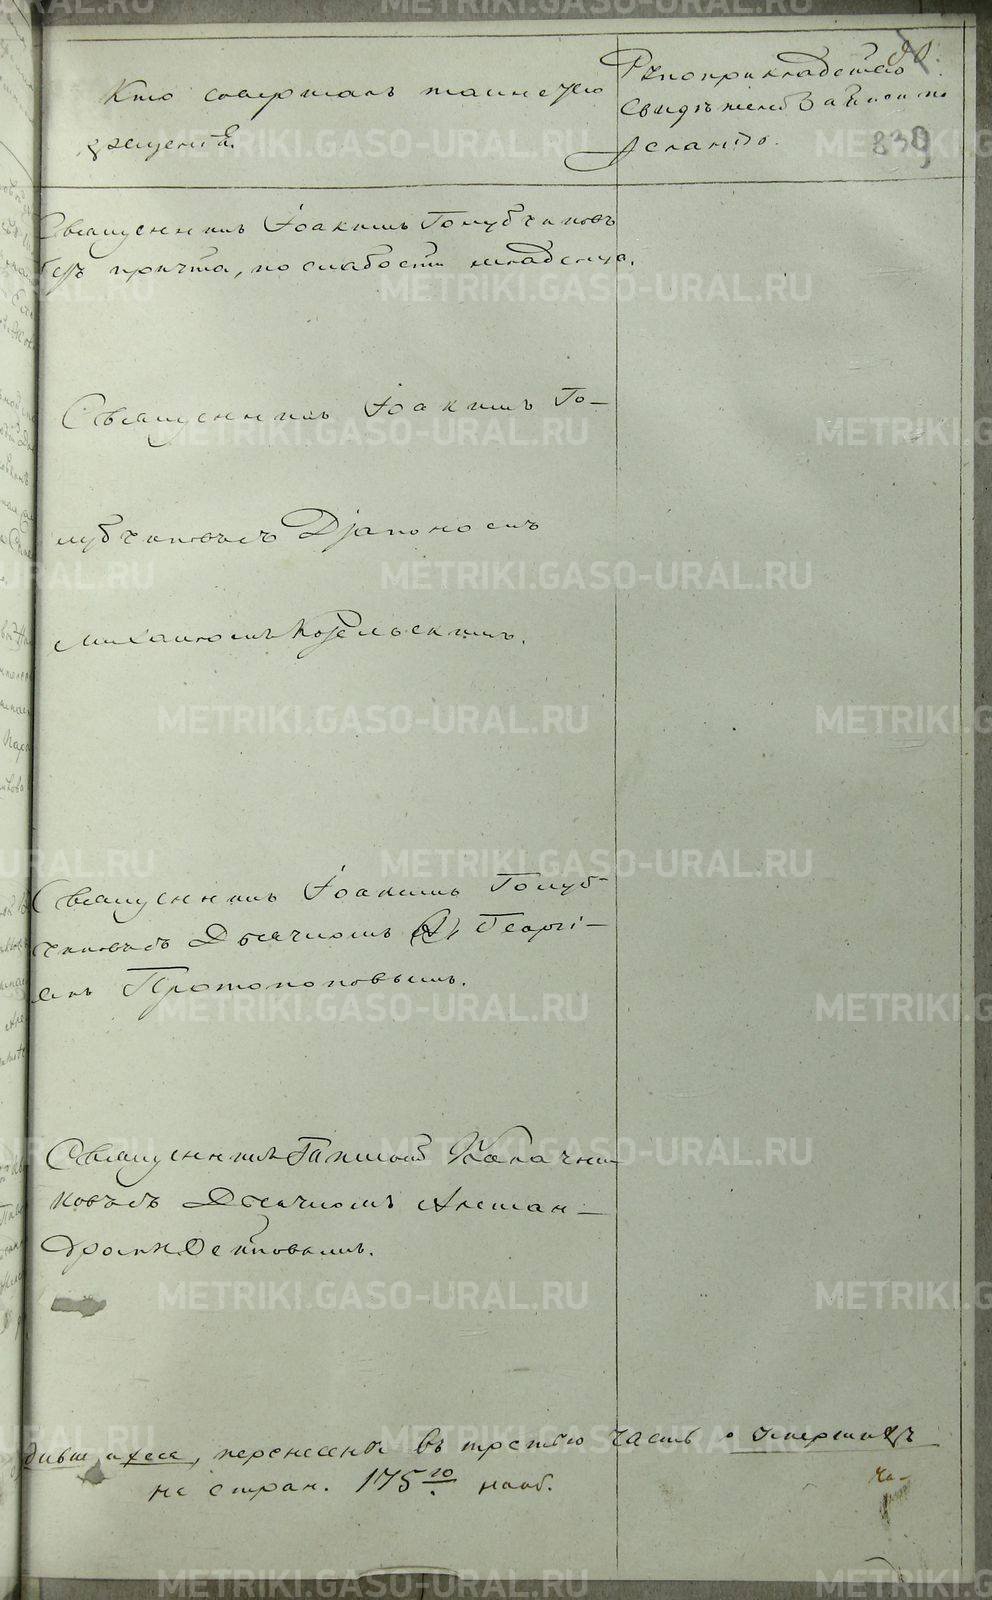 90.
839
Кто совершалъ таинство
крещенія.
Рукоприкладство
свидѣтелей записи по
желанію.
Священникъ Іоакимъ Голубчиковъ
безъ причта, по слабости младенца.
Священникъ Іоакимъ Го-
лубчиковъ съ Діакономъ
Михаиломъ Козельскимъ.
Священникъ Іоакимъ Голуб-
чиковъ съ Дьячкомъ Георгі-
емъ Протопоповымъ.
Священникъ Калачни-
ковъ съ Дьячкомъ Алексан-
дромъ
перенесены въ третью часть о умершихъ
на стран. 175 ю наоб.
METRIKI.GASO-URAL.RU